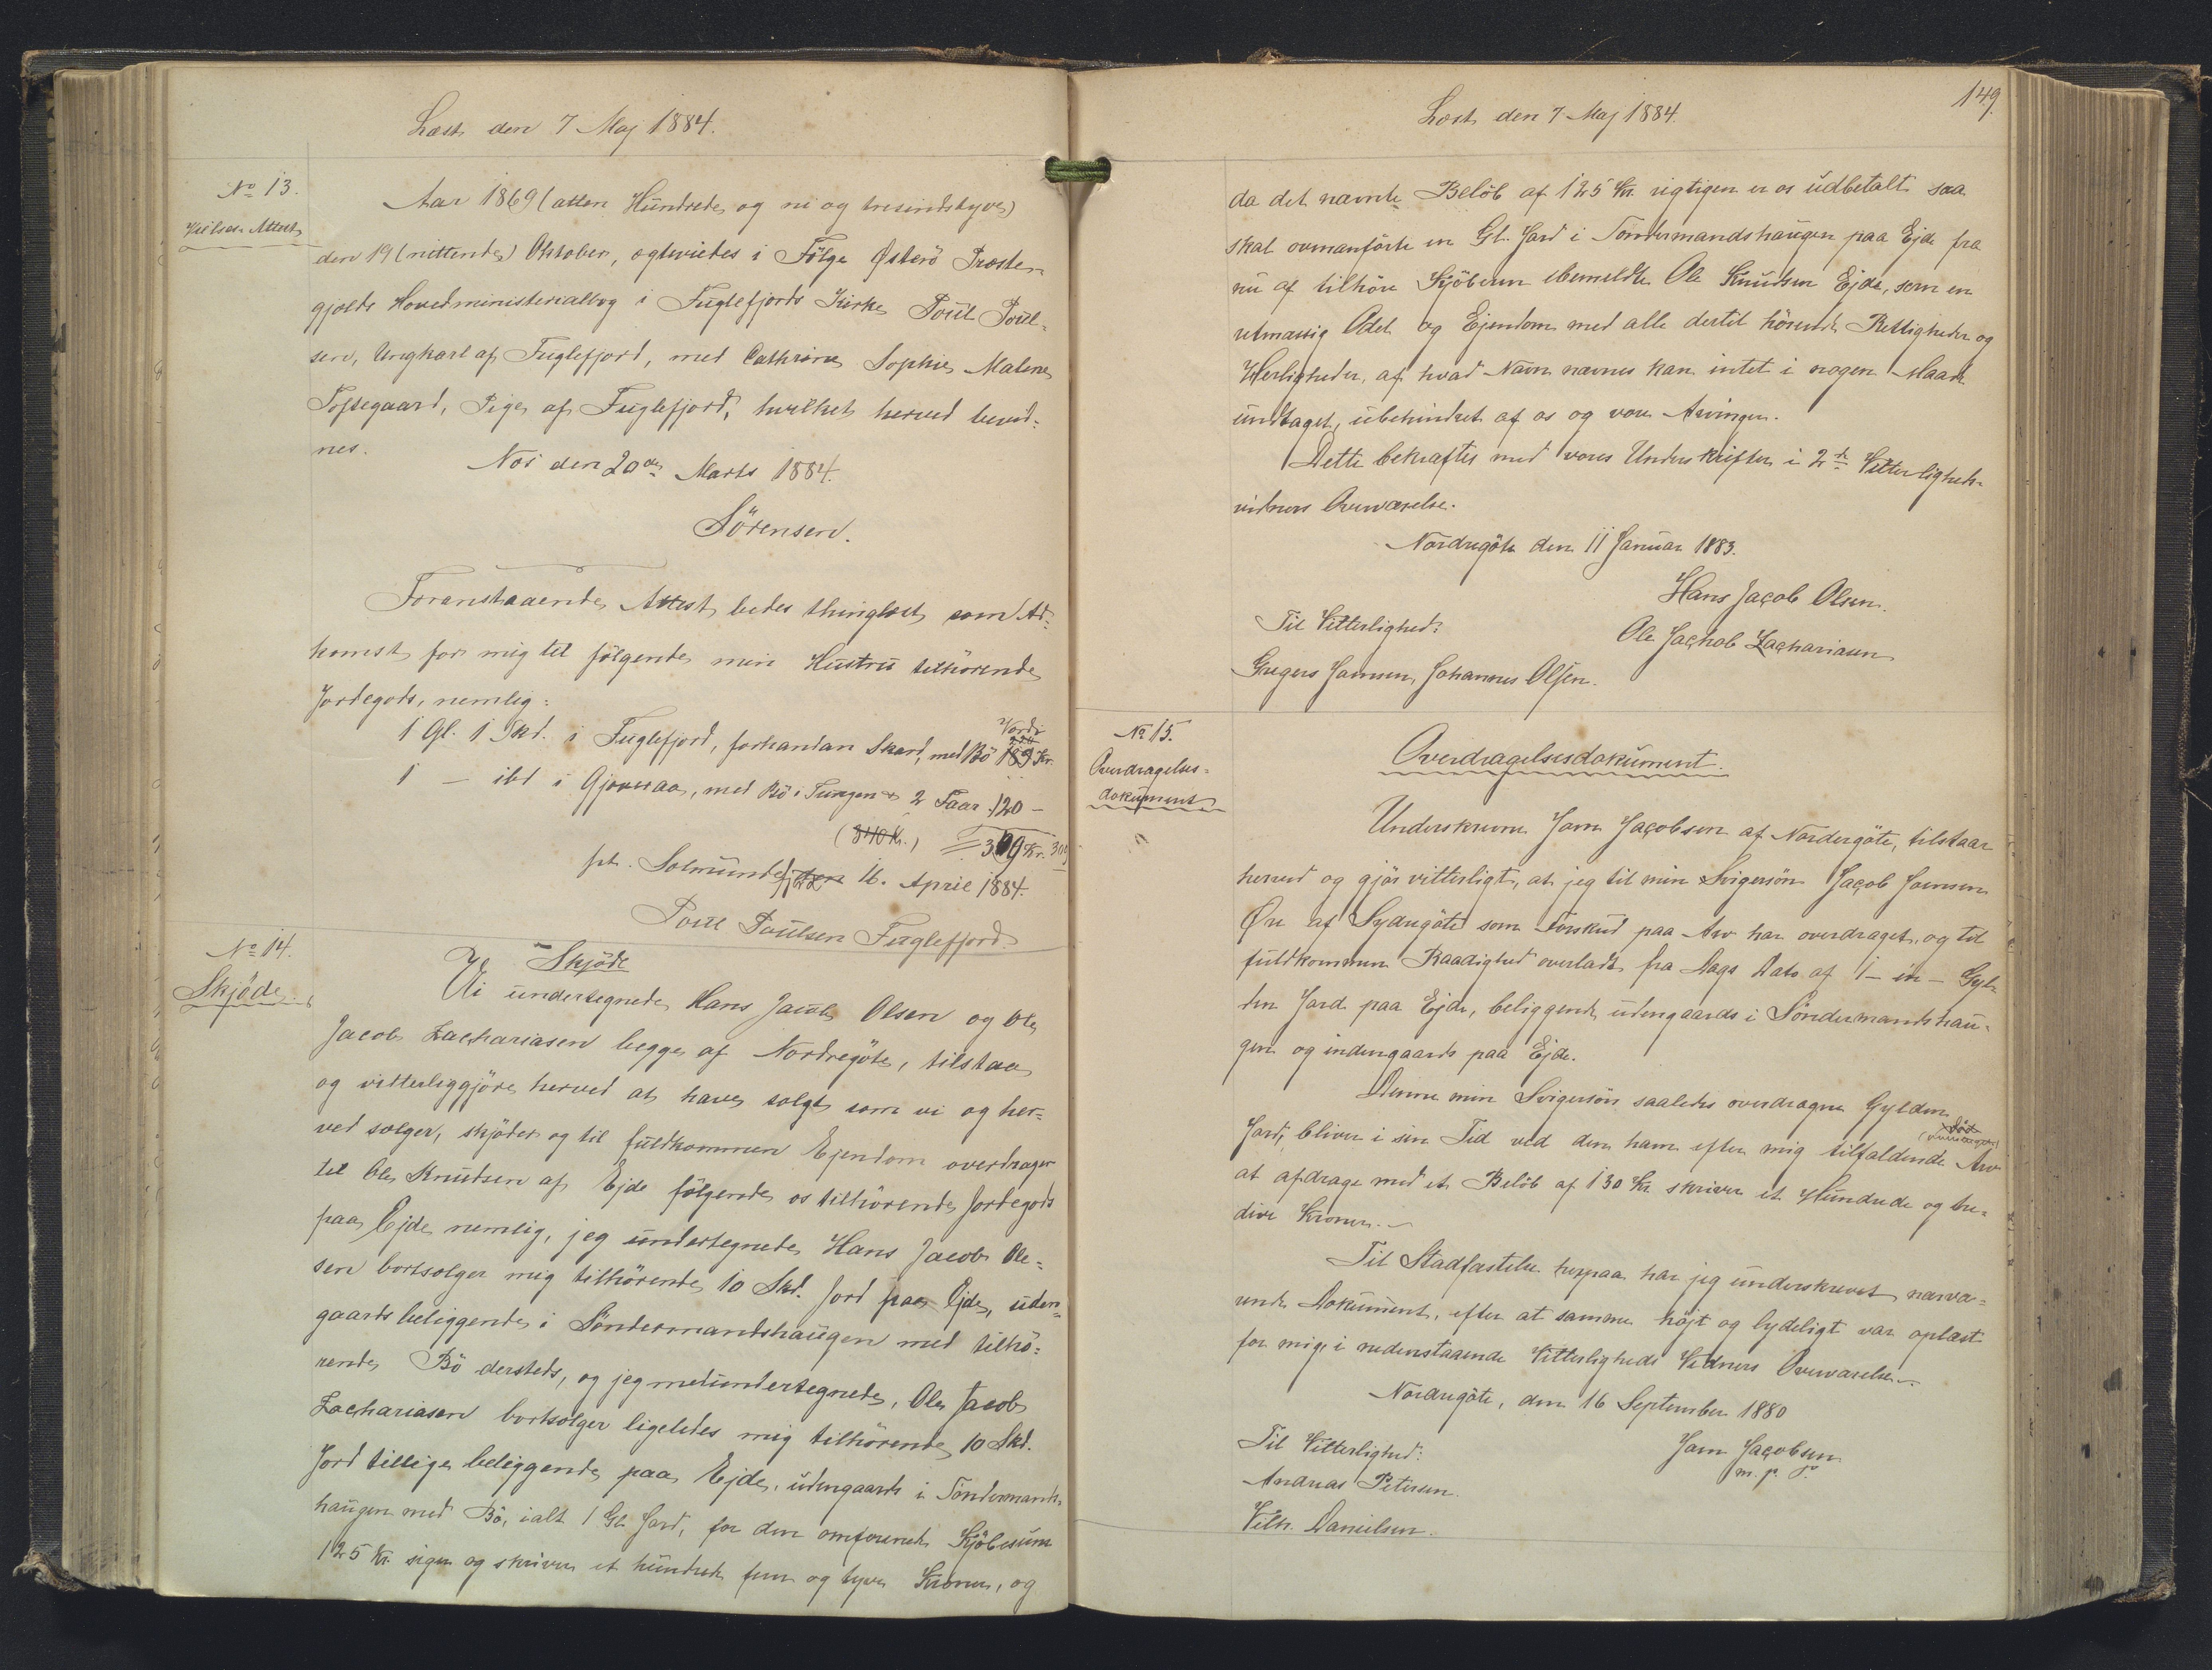 Læst den 7 Maj 1884.
No 13.
Vielses Attest
Aar 1869 (atten Hundrede og ni og tresindstyve)
den 19 (nittende) Oktober, ægteviedes i Følge Østerö Præste-
gjelds Hovedministerialbog i Fuglefjords Kirke Poul Poul-
sen, Ungkarl af Fuglefjord, med Cathrine Sophie Malene
Toftegaard, Pige af Fuglefjord, hvilket herved bevid-
nes.
Næs den 20de Marts 1884.
Sörensen.
Foranstaaende Attest bedes thinglæst som Ad-
komst for mig til følgende min Hustru tilhörende
Jordegods, nemlig:
Værdi
1 Gl. 1 Skd. i Fuglefjord, forhandan Skard, med Bö 189 Kr.
1 — ibd i Gjøveraa, med Bö i Tungen & 2 Faar 120 —
(340 Kr.) 309 Kr. 309
pt. Solmundefjord 16. April 1884.
Poul Poulsen Fuglefjord.
No 14.
Skjöde
Skjöde
Vi undertegnede Hans Jacob Olsen og Ole
Jacob Zachariasen begge af Nordregöte, tilstaa
og vitterliggjöre herved at have solgt som vi og her-
ved sælger, skjöder og til fuldkommen Ejendom overdrager
til Ole Knudsen af Ejde følgende os tilhörende Jordegods
paa Ejde nemlig, jeg undertegnede Hans Jacob Ole-
sen bortsælger mig tilhörende 10 Skd. Jord paa Ejde, uden-
gaards beliggende i Söndermandshaugen med tilhö-
rende Bö dersteds, og jeg medundertegnede, Ole Jacob
Zachariasen bortsælger ligeledes mig tilhörende 10 Skd.
Jord tillige beliggende paa Ejde, udengaards i Söndermands-
haugen med Bö, ialt 1 Gl. Jord, for den omforenede Kjöbesum
125 Kr. siger og skriver et hundrede fem og tyve Kroner, og
149.
Læst den 7 Maj 1884.
da det nævnte Belöb af 125 Kr. rigtigen er os udbetalt saa
skal ovenanförte en Gl. Jord i Söndermandshaugen paa Ejde fra
nu af tilhöre Kjöberen ebemeldte Ole Knudsen Ejde, som en
retmæssig Odel og Ejendom med alle dertil hörende Rettigheder og
Herligheder, af hvad Navn nævnes kan intet i nogen Maade
undtaget, ubehindret af os og vore Arvinger.
Dette bekræftes med vores Underskrifter i 2de Vitterligheds-
vidners Overværelse.
Nordregöte den 11 Januar 1883.
Hans Jacob Olsen.
Til Vitterlighed:
Ole Jachob Zachariasen
Gregers Joensen, Johannes Olsen.
No 15.
Overdragelses-
dokument
Overdragelsesdokument.
Underskrevne Joen Jacobsen af Nordergöte, tilstaar
herved og gjör vitterligt, at jeg til min Svigersön Jacob Joensen
Öre af Sydregöte som Forskud paa Arv har overdraget og til
fuldkommen Raadighed overladt fra Dags Dato af 1 — en — Gyl-
den Jord paa Ejde, beliggende udengaards i Söndermandshau-
gen og indengaards paa Ejde.
Denne min Svigersön saaledes overdragne Gylden
Jord, bliver i sin Tid ved den ham efter mig tilfaldende Arv
at afdrage med et Belöb af 130 Kr skriver et Hundrede og tre-
dive Kroner.
Til Stadfæstelse herpaa har jeg underskrevet nærvæ-
rende Dokument, efter at samme höjt og lydeligt var oplæst
for mig, i nedenstaaende Vitterligheds Vidners Overværelse.
Nordregöte, den 16 September 1880
Til Vitterlighed:
Joen Jacobsen
m. p. P.
Andreas Petersen.
Vilh. Danielsen.